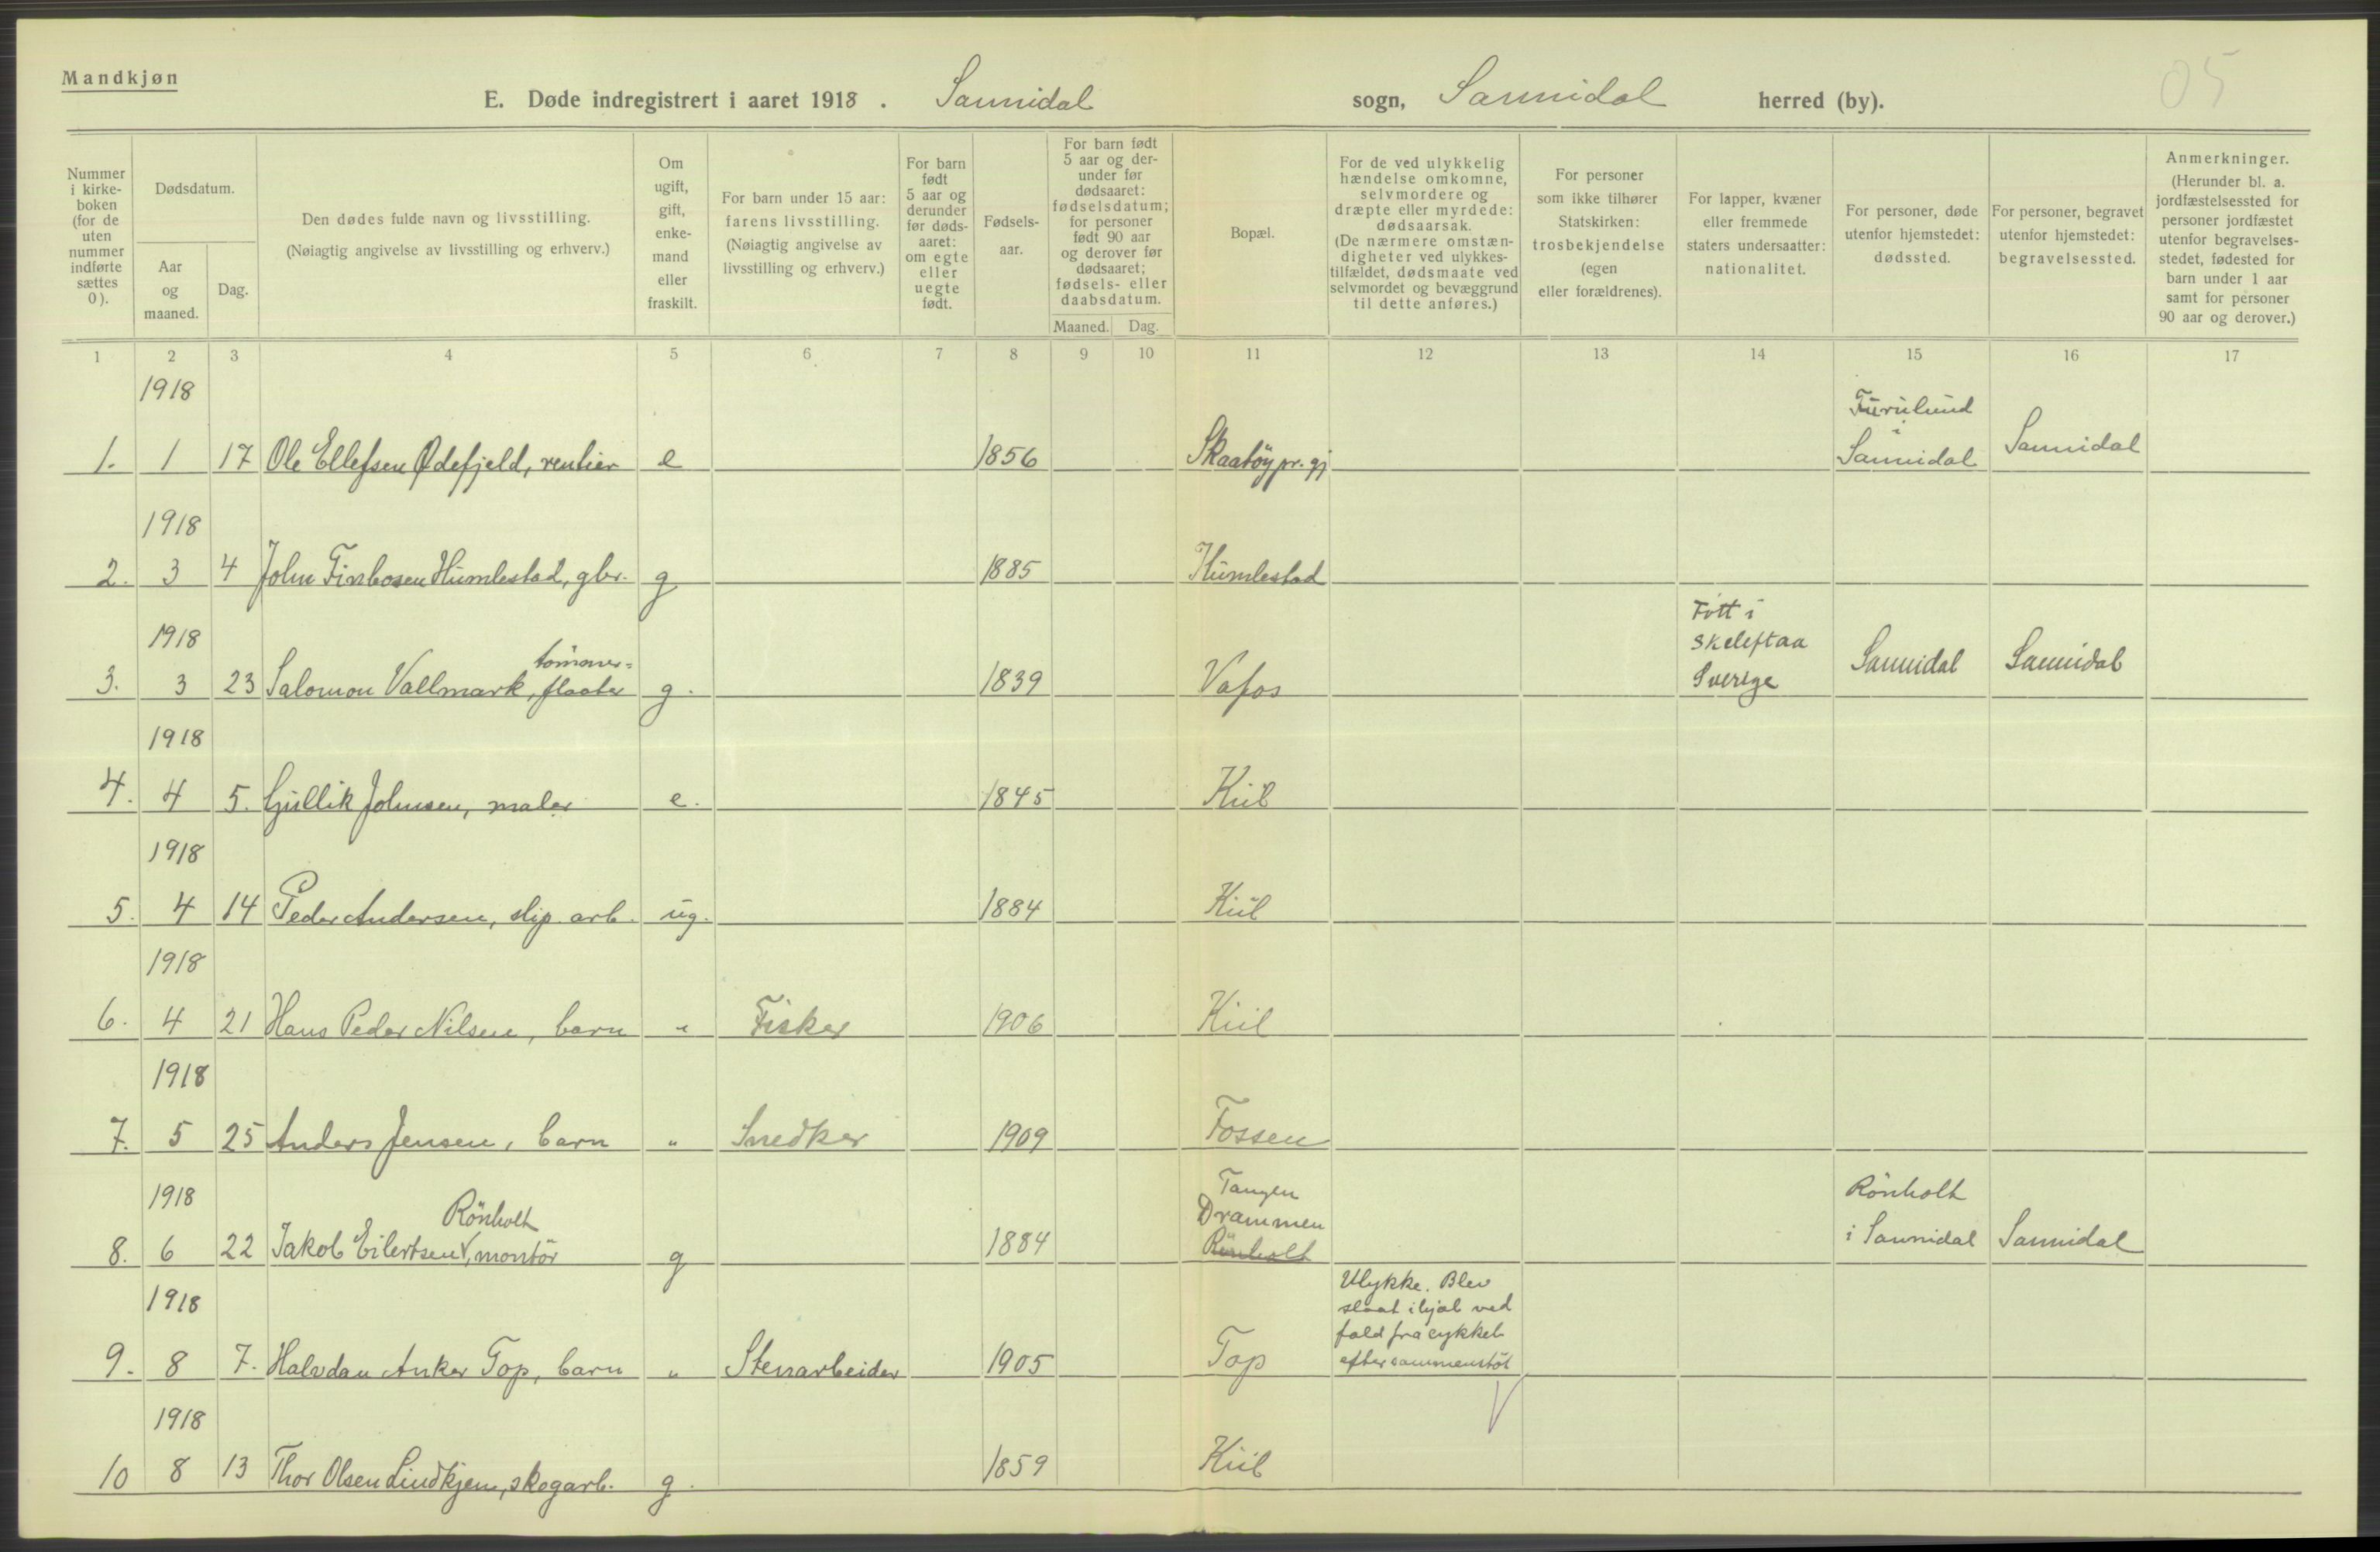 Mandkjøn
E. Døde indregistrert i aaret 1918 . Sannidal sogn, Sannidal herred (by).
05
Nummer i kirke-boken (for de uten nummer indførte sættes 0).
Dødsdatum.
Aar og maaned.
Dag.
Den dødes fulde navn og livsstilling.
(Nøiagtig angivelse av livsstilling og erhverv.)
Om ugift, gift, enke-mand eller fraskilt.
For barn under 15 aar: farens livsstilling.
(Nøiagtig angivelse av livsstilling og erhverv.)
For barn født 5 aar og derunder før døds-aaret: om egte eller uegte født.
Fødsels-aar.
For barn født 5 aar og der-under før dødsaaret: fødselsdatum; for personer født 90 aar og derover før dødsaaret; fødsels- eller daabsdatum.
Maaned. Dag.
Bopæl.
For de ved ulykkelig hændelse omkomne, selvmordere og dræpte eller myrdede: dødsaarsak.
(De nærmere omstæn-digheter ved ulykkes-tilfældet, dødsmaate ved selvmordet og bevæggrund til dette anføres.)
For personer som ikke tilhører Statskirken: trosbekjendelse (egen eller forældrenes).
For lapper, kvæner eller fremmede staters undersaatter: nationalitet.
For personer, døde utenfor hjemstedet: dødssted.
For personer, begravet utenfor hjemstedet: begravelsessted.
Anmerkninger.
(Herunder bl. a. jordfæstelsessted for personer jordfæstet utenfor begravelses-stedet, fødested for barn under 1 aar samt for personer 90 aar og derover.)
1 2 3 4 5 6 7 8 9 10 11 12 13 14 15 16 17
1918
Furulund i
1. 1 17 Ole Ellefsen Ødefjeld, rentier e 1856 Skaatöy pr. gj Sannidal Sannidal
1918
2. 3 4 John Finbosen Humlestad, gbr. g 1885 Humlestad
1918
tömmer-
Fött i
Skeleftaa
3. 3 23 Salomon Vallmark, flaater g. 1839 Vafos Sverige Sannidal Sannidal
1918
4. 4 5. Gullik Johnsen, maler e. 1845 Kiil
1918
5. 4 14 Peder Andersen, slip. arb. ug. 1884 Kiil
1918
6. 4 21 Hans Peder Nilsen, barn " Fisker 1906 Kiil
1918
7. 5 25 Anders Jensen, barn " Snedker 1909 Fossen
1918
Rönholt
Tangen
Drammen
Rönholt
8. 6 22 Jakob Eilertsen V, montör g 1884 Rönholt i Sannidal Sannidal
1918
Ulykke. Blev
slaat ihjal ved
fald fra cykkel
9. 8 7. Halvdan Anker Top, barn " Stenarbeider 1905 Top efter sammenstöt
1918
10 8 13 Thor Olsen Lindkjen, skogarb. g. 1859 Kiil